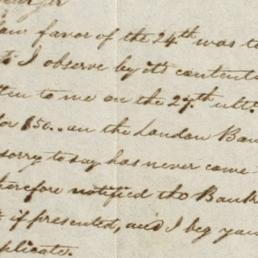 favor of the 24th was
I observe by its contents
to me on the 27th ult
for 150.. on the London Bank
sorry to say has never come
therefore notified the Bank
if presented, and I beg you
plicate.